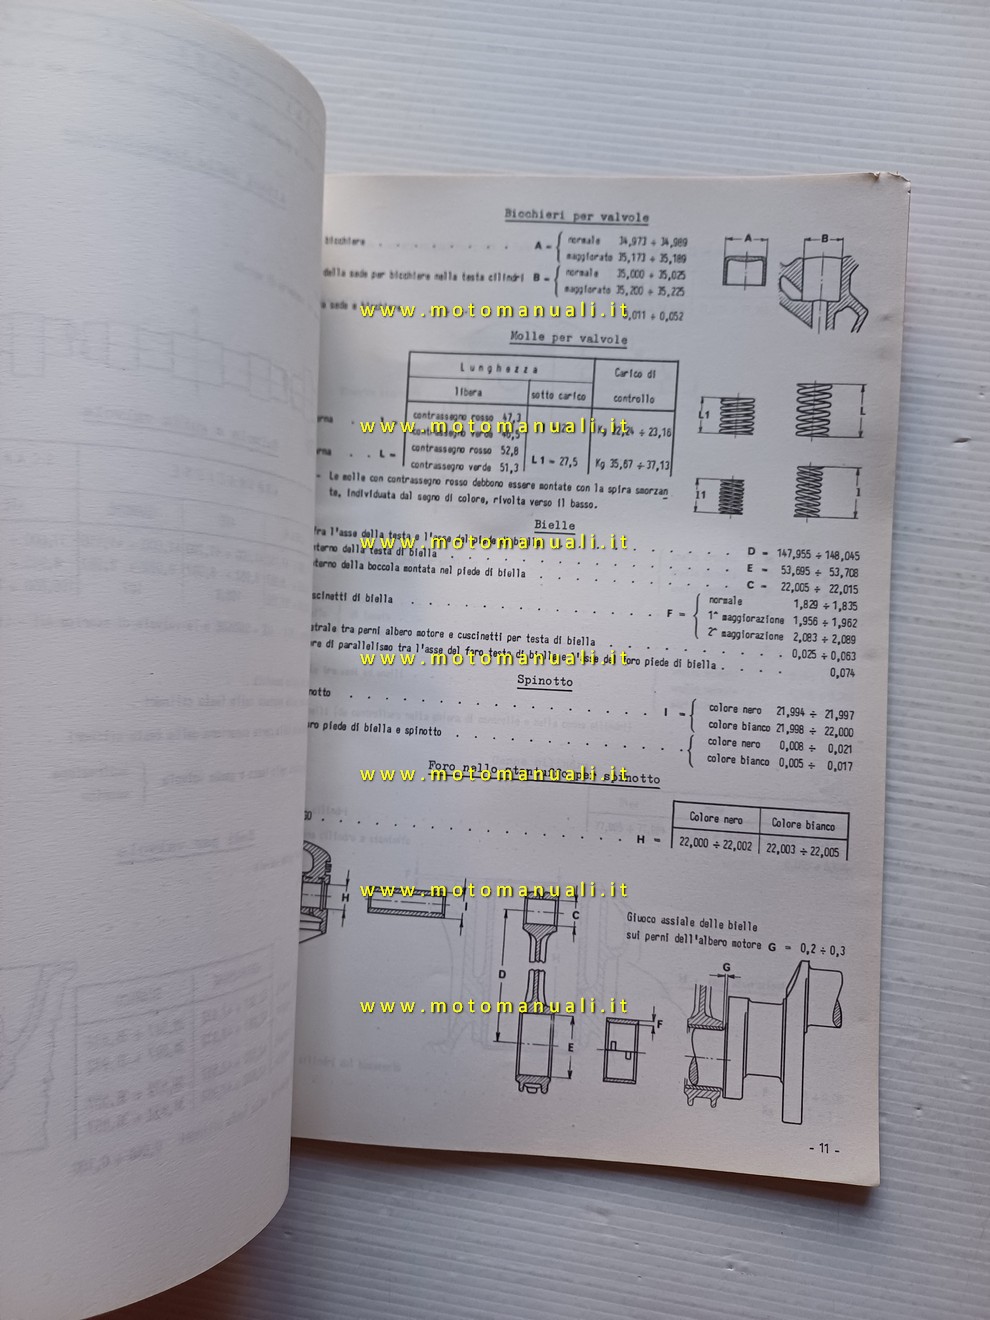 Bicchieri per valvole
bicchiere . . . . . . . . A = normale 34,973 ÷ 34,989
maggiorato 35,173 ÷ 35,189
della sede per bicchiere nella testa cilindri B = normale 35,000 ÷ 35,025
maggiorato 35,200 ÷ 35,225
www.motomanuali.it
,011 ÷ 0,052
A
B
Molle per valvole
Lunghezza
Carico di
controllo
libera
sotto carico
contrassegno rosso 47,3
contrassegno verde
www.motomanuali.it
÷ 23,16
. . L =
contrassegno rosso 52,8
contrassegno verde 51,3
L1 = 27,5
Kg 35,67 ÷ 37,13
L1
L
l1
l
- Le molle con contrassegno rosso debbono essere montate con la spira smorzan
te, individuata dal segno di colore, rivolta verso il basso.
Bielle
www.motomanuali.it
D = 147,955 ÷ 148,045
nterno della testa di biella . . . . . . E = 53,695 ÷ 53,708
nterno della boccola montata nel piede di biella . . . . . . C = 22,005 ÷ 22,015
scinetti di biella . . . . . . F = normale 1,829 ÷ 1,835
1ª maggiorazione 1,956 ÷ 1,962
2ª maggiorazione 2,083 ÷ 2,089
trale tra perni albero motore e cuscinetti per testa di biella . . . . . . 0,025 ÷ 0,063
re di parallelismo tra l'asse del foro testa di biella e l'asse del foro piede di biella . . . 0,074
www.motomanuali.it
Spinotto
notto . . . . . . I = colore nero 21,994 ÷ 21,997
colore bianco 21,998 ÷ 22,000
ro piede di biella e spinotto . . . . . . colore nero 0,008 ÷ 0,021
colore bianco 0,005 ÷ 0,017
Foro nello stantuffo per spinotto
www.motomanuali.it
Colore nero
Colore bianco
H =
22,000 ÷ 22,002
22,003 ÷ 22,005
www.motomanuali.it
H
I
C
D
E
F
Giuoco assiale delle bielle
sui perni dell'albero motore G = 0,2 ÷ 0,3
G
www.motomanuali.it
- 11 -